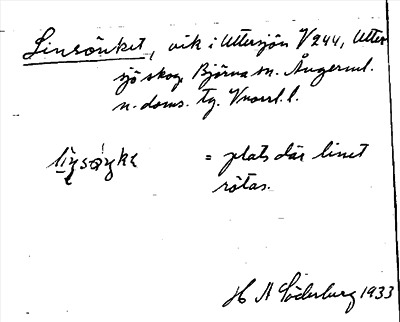 Linsönket, vik i Uttersjön V244, Utter
sjöskog Björna sn. Ångerml.
n. doms. tg. Vnorrl. l.
= plats där linet
rötas.
H A Söderburg 1933